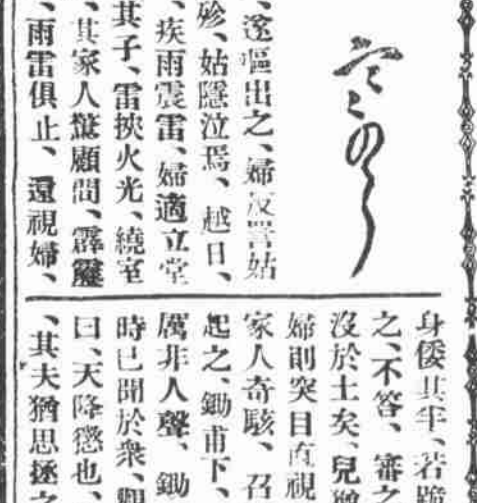 、遂嘔出之、婦反詈姑
殄、姑隱泣焉、越日、
、疾雨震雷、婦適立堂
其子、雷挾火光、繞室
、其家人驚顧間、霹靂
、雨雷俱止、還視婦、
身倭其半、若跪
之、不答、審之
沒於土矣、兒
婦則突目直視
家人奇駭、召
起之、鋤甫下、
厲非人聲、鋤
時已聞於衆、觀
曰、天降懲也、
、其夫猶思拯之